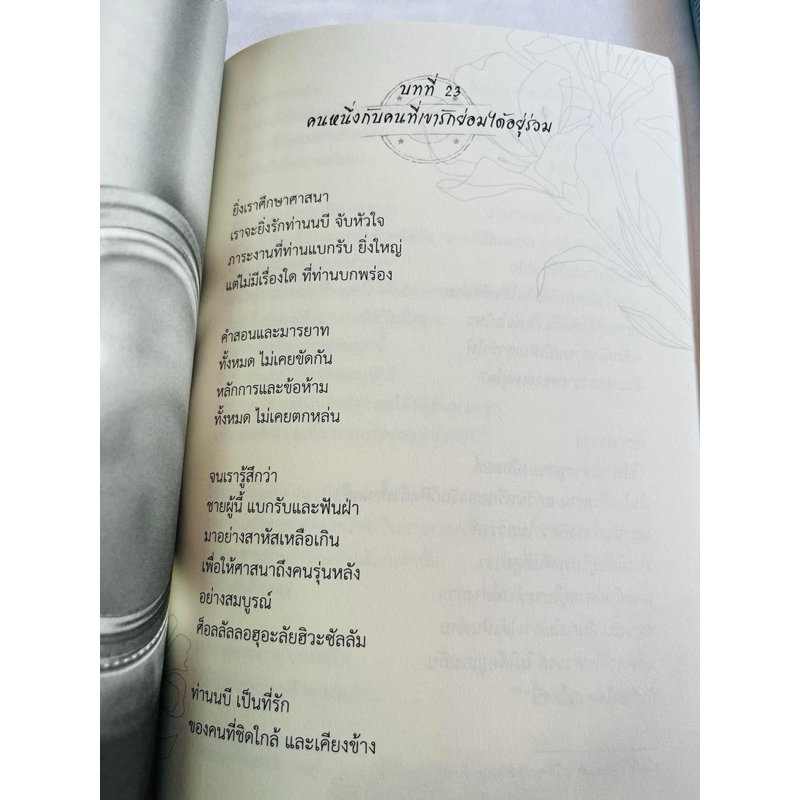 บทที่ 23
คนหนึ่งกับคนที่เขารักย่อมได้อยู่ร่วม
ยิ่งเราศึกษาศาสนา
เราจะยิ่งรักท่านนบี จับหัวใจ
ภาระงานที่ท่านแบกรับ ยิ่งใหญ่
แต่ไม่มีเรื่องใด ที่ท่านบกพร่อง
คำสอนและมารยาท
ทั้งหมด ไม่เคยขัดกัน
หลักการและข้อห้าม
ทั้งหมด ไม่เคยตกหล่น
จนเรารู้สึกว่า
ชายผู้นี้ แบกรับและฟันฝ่า
มาอย่างสาหัสเหลือเกิน
เพื่อให้ศาสนาถึงคนรุ่นหลัง
อย่างสมบูรณ์
ศ็อลลัลลอฮุอะลัยฮิวะซัลลัม
ท่านนบี เป็นที่รัก
ของคนที่ชิดใกล้ และเคียงข้าง